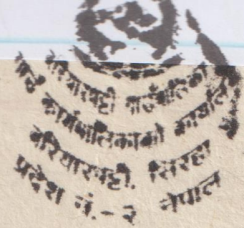 बरियारपट्टी गाउँपालिका
गाउँ कार्यपालिकाको कार्यालय
बरियारपट्टी, सिरहा
प्रदेश नं.- २ नेपाल